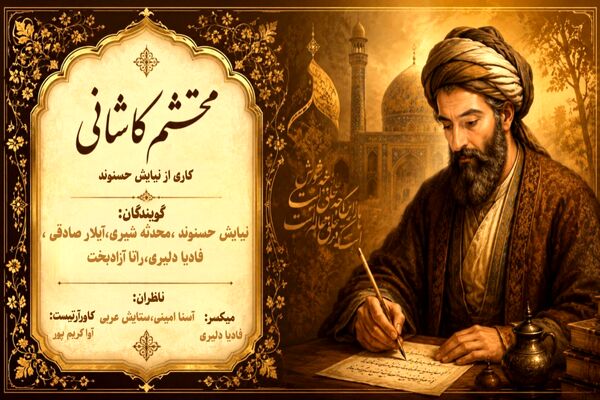 محتشم کاشانی
کاری از نیایش حسنوند
گویندگان:
نیایش حسنوند ،محدثه شیری،آیلار صادقی ،
فادیا دلیری،رانا آزادبخت
ناظران:
میکسر: آسنا امینی،ستایش عربی کاورآرتیست:
فادیا دلیری آوا کریم پور